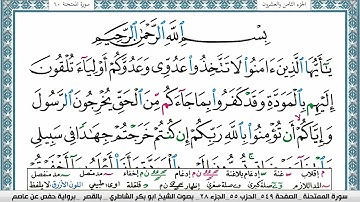 الجزء الثامن والعشرون
سورة الممتحنة ٦٠
بِسْمِ ٱللَّهِ ٱلرَّحْمَٰنِ ٱلرَّحِيمِ
يَٰٓأَيُّهَا ٱلَّذِينَ ءَامَنُوا۟ لَا تَتَّخِذُوا۟ عَدُوِّى وَعَدُوَّكُمْ أَوْلِيَآءَ تُلْقُونَ
إِلَيْهِم بِٱلْمَوَدَّةِ وَقَدْ كَفَرُوا۟ بِمَا جَآءَكُم مِّنَ ٱلْحَقِّ يُخْرِجُونَ ٱلرَّسُولَ
وَإِيَّاكُمْ أَن تُؤْمِنُوا۟ بِٱللَّهِ رَبِّكُمْ إِن كُنتُمْ خَرَجْتُمْ جِهَٰدًا فِى سَبِيلِى
سورة الممتحنة الصفحة ٥٤٩ الجزء ٢٨ الحزب ٥٥ بصوت الشيخ أبو بكر الشاطري بالقصر برواية حفص عن عاصم